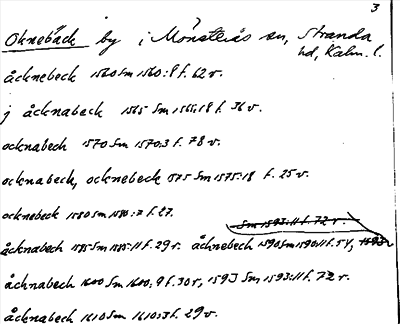 3
Oknebäck by i Mönsterås sn, Stranda
hd, Kalm. l.
åcknebeck 1560 Sm 1560:8 f. 62 v.
j åcknabeck 1565 Sm 1565:18 f. 36 v.
ocknabech 1570 Sm 1570:3 f. 78 v.
ocknabeck, ocknebeck 1575 Sm 1575:18 f. 25 v.
ocknebeck 1580 Sm 1580:7 f. 27.
Sm 1593:11 f. 72 v.
åcknabech 1585 Sm 1585:11 f. 29 v. åcknebech 1590 Sm 1590:11 f. 54, 1593
åcknabech 1600 Sm 1600:9 f. 30 v, 1593 Sm 1593:11 f. 72 v.
åcknabeck 1610 Sm 1610:3 f. 29 v.